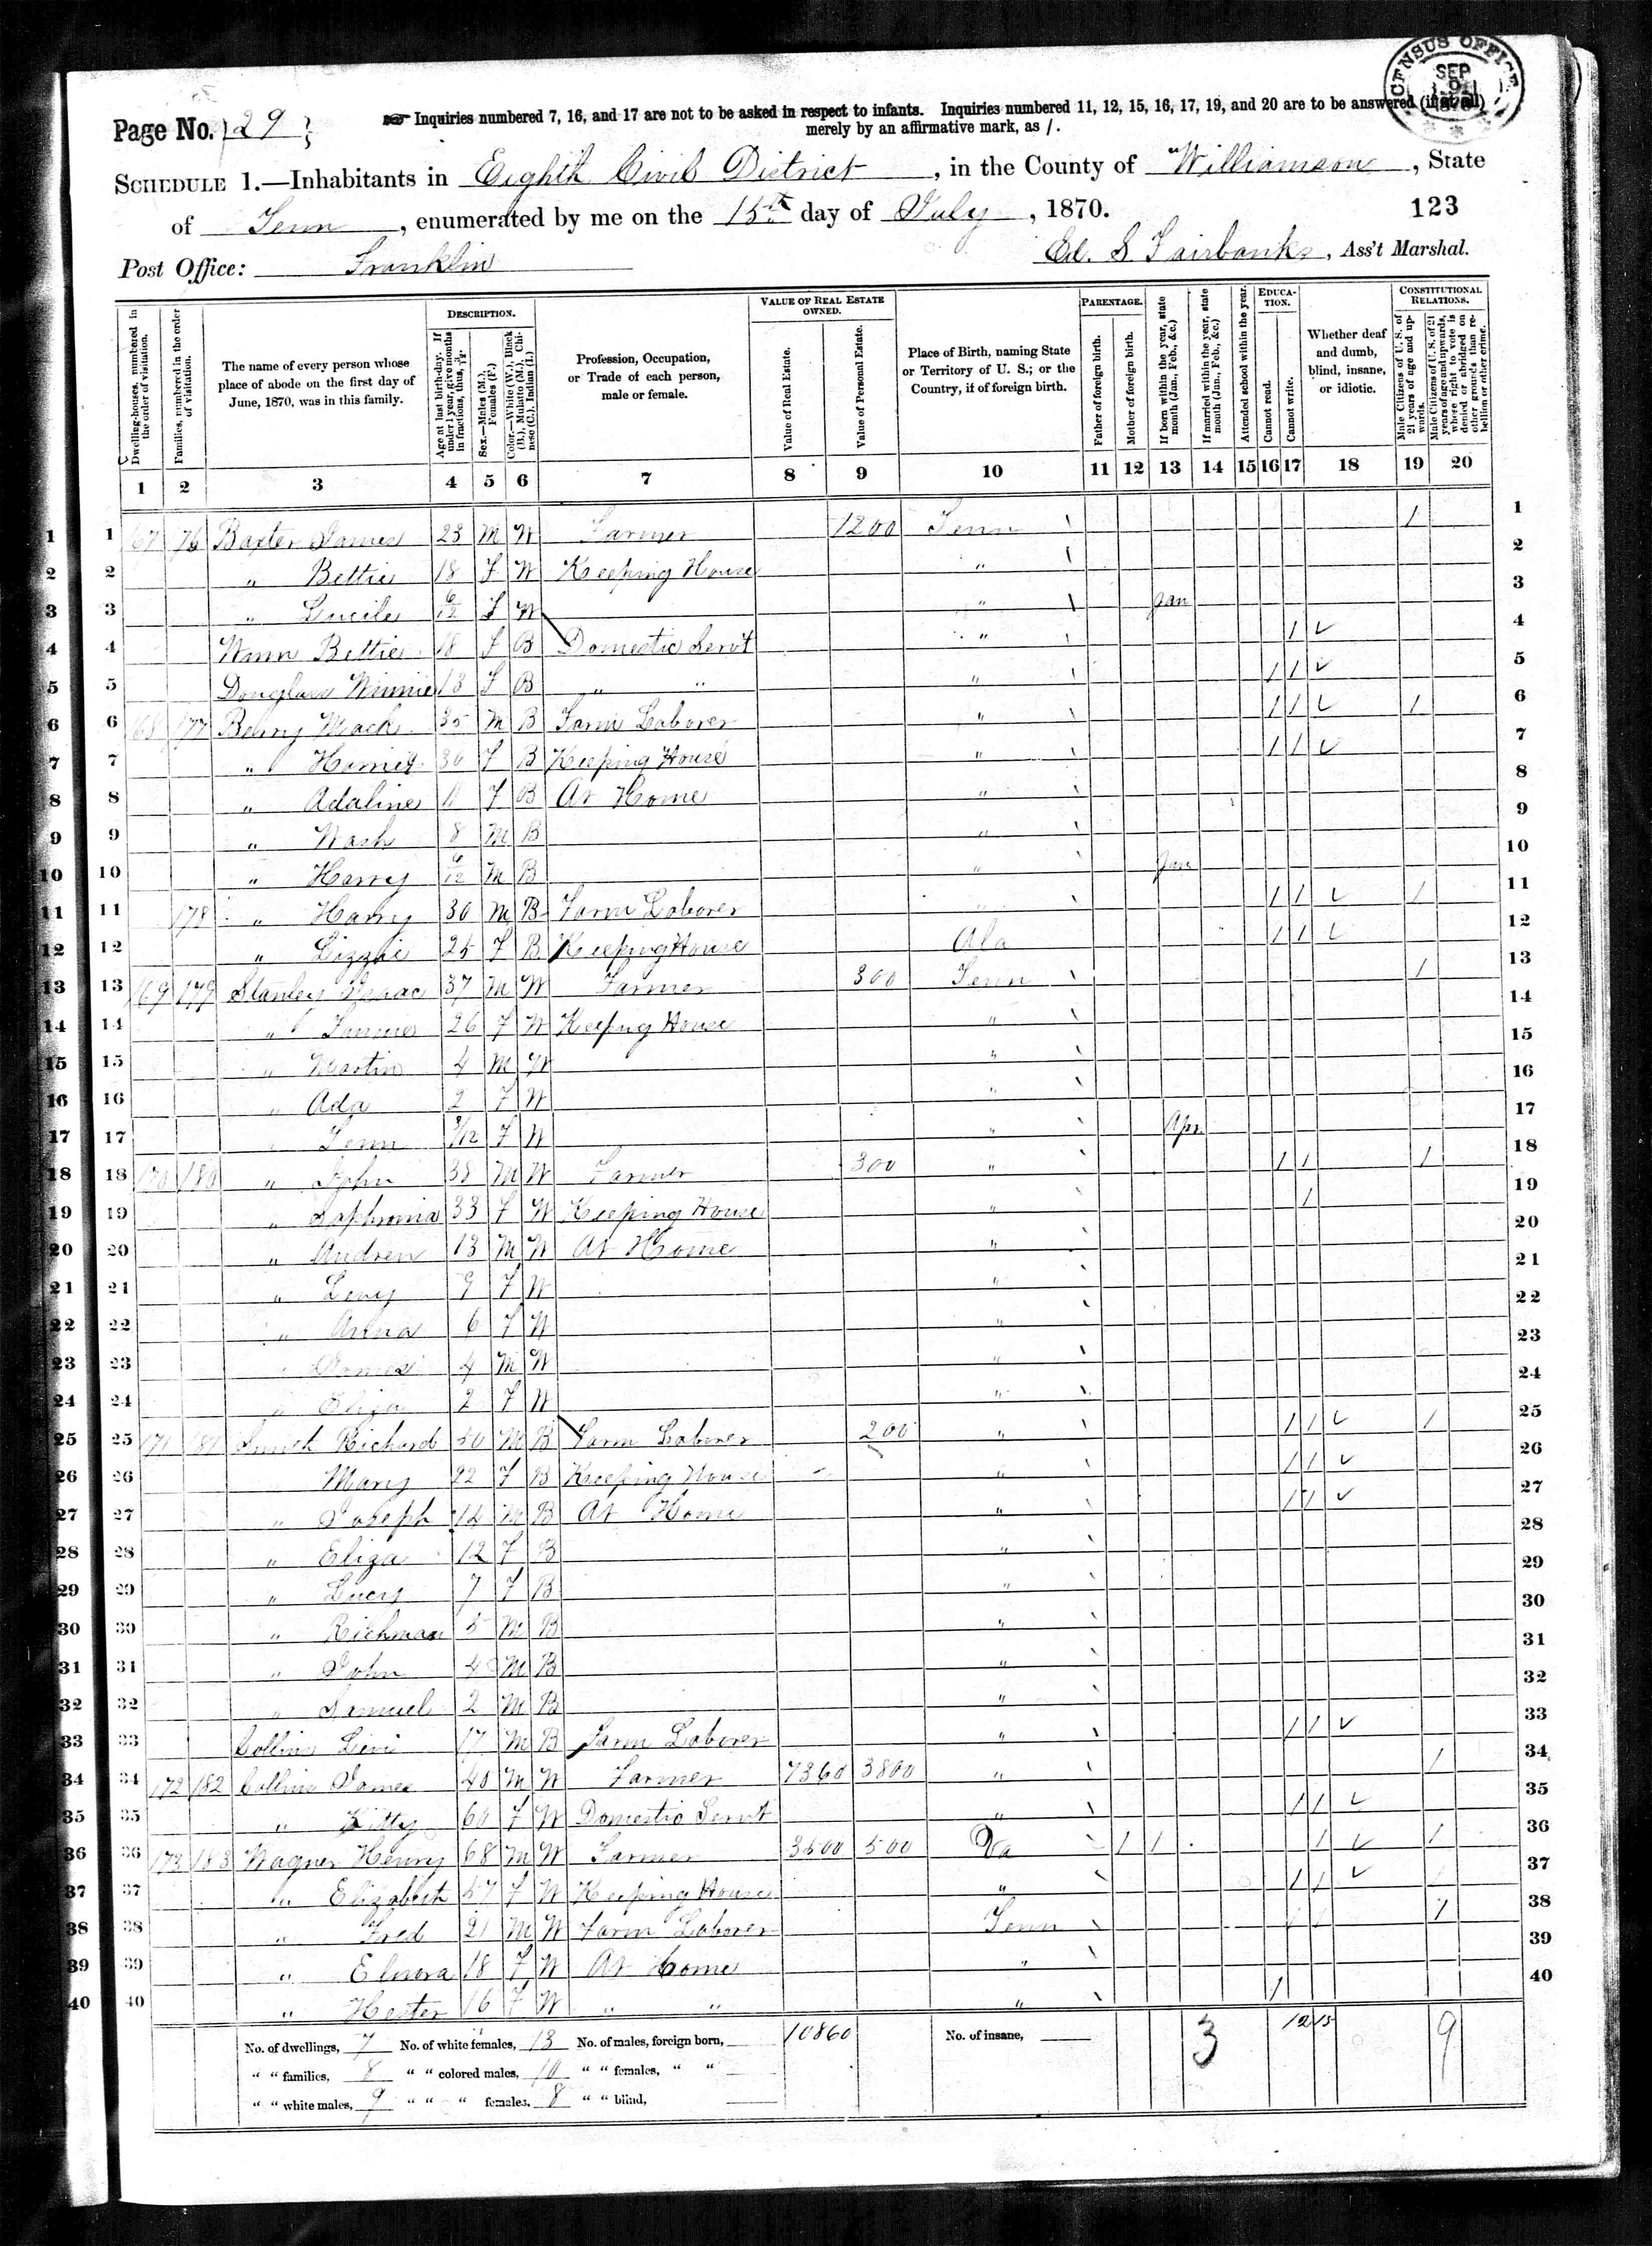 CENSUS OFFICE SEP 1870
Page No. 29 Inquiries numbered 7, 16, and 17 are not to be asked in respect to infants. Inquiries numbered 11, 12, 15, 16, 17, 19, and 20 are to be answered (if at all)
merely by an affirmative mark, as /.
SCHEDULE 1.—Inhabitants in Eighth Civil District, in the County of Williamson, State
of Tenn, enumerated by me on the 15th day of July, 1870. 123
Post Office: Franklin Ed. S Fairbanks, Ass't Marshal.
Dwelling-houses, numbered in the order of visitation.
Families, numbered in the order of visitation.
The name of every person whose place of abode on the first day of June, 1870, was in this family.
DESCRIPTION.
Age at last birth-day. If under 1 year, give months in fractions, thus, 3/12.
Sex.—Males (M.), Females (F.)
Color.—White (W.), Black (B.), Mulatto (M.), Chinese (C.), Indian (I.)
Profession, Occupation, or Trade of each person, male or female.
VALUE OF REAL ESTATE OWNED.
Value of Real Estate.
Value of Personal Estate.
Place of Birth, naming State or Territory of U. S.; or the Country, if of foreign birth.
PARENTAGE.
Father of foreign birth.
Mother of foreign birth.
If born within the year, state month (Jan., Feb., &c.)
If married within the year, state month (Jan., Feb., &c.)
EDUCATION.
Attended school within the year.
Cannot read.
Cannot write.
Whether deaf and dumb, blind, insane, or idiotic.
CONSTITUTIONAL RELATIONS.
Male Citizens of U. S. of 21 years of age and upwards.
Male Citizens of U. S. of 21 years of age and upwards, whose right to vote is denied or abridged on other grounds than rebellion or other crime.
1 2 3 4 5 6 7 8 9 10 11 12 13 14 15 16 17 18 19 20
1 1 167 176 Baxter James 23 M W Farmer 1200 Tenn 1 1
2 2 " Bettie 18 F W Keeping House " 2
3 3 " Lucile 6/12 F W " Jan 3
4 4 Winn Bettie 18 F B Domestic Servt " 1 ✓ 4
5 5 Douglass Winnie 13 F B " " " 1 1 ✓ 5
6 6 168 177 Berry Mack 35 M B Farm Laborer " 1 1 ✓ 1 6
7 7 " Harriet 30 F B Keeping House " 1 1 ✓ 7
8 8 " Adaline 11 F B At Home " 8
9 9 " Wash 8 M B " 9
10 10 " Harry 6/12 M B " Jan 10
11 11 178 " Harry 30 M B Farm Laborer " 1 1 ✓ 1 11
12 12 " Lizzie 25 F B Keeping House Ala 1 1 ✓ 12
13 13 169 179 Stanley Isaac 37 M W Farmer 300 Tenn 1 13
14 14 " 26 F W Keeping House " 14
15 15 " Martin 4 M W " 15
16 16 " Ada 2 F W " 16
17 17 " Tenn 3/12 F W " Apr 17
18 18 170 180 " John 38 M W Farmer 300 " 1 1 1 18
19 19 " Sophronia 33 F W Keeping House " 1 19
20 20 " Andrew 13 M W At Home " 20
21 21 " 9 F W " 21
22 22 " Anna 6 F W " 22
23 23 " James 4 M W " 23
24 24 " Eliza 2 F W " 24
25 25 171 181 Smith Richard 50 M B Farm Laborer 200 " 1 1 ✓ 1 25
26 26 Mary 22 F B Keeping House " 1 1 ✓ 26
27 27 " Joseph 14 M B At Home " 1 1 ✓ 27
28 28 " Eliza 12 F B " 28
29 29 " Lucy 7 F B " 29
30 30 " Richman 5 M B " 30
31 31 " John 4 M B " 31
32 32 " Samuel 2 M B " 32
33 33 Collins Levi 17 M B Farm Laborer " 1 1 ✓ 33
34 34 172 182 Collins James 40 M W Farmer 7360 3800 " 1 34
35 35 " Kitty 60 F W Domestic Servt " 1 1 ✓ 35
36 36 173 183 Wagner Henry 68 M W Farmer 3500 500 Va 1 1 1 ✓ 1 36
37 37 " Elizabeth 57 F W Keeping House " 1 1 ✓ 37
38 38 " Fred 21 M W Farm Laborer Tenn 1 1 1 38
39 39 " Elnora 18 F W At Home " 39
40 40 " Hester 16 F W " " " 1 40
No. of dwellings, 7 No. of white females, 13 No. of males, foreign born, 10860 No. of insane, 3 12 15 9
" " families, 8 " " colored males, 10 " " females, " "
" " white males, 9 " " " females, 8 " " blind,